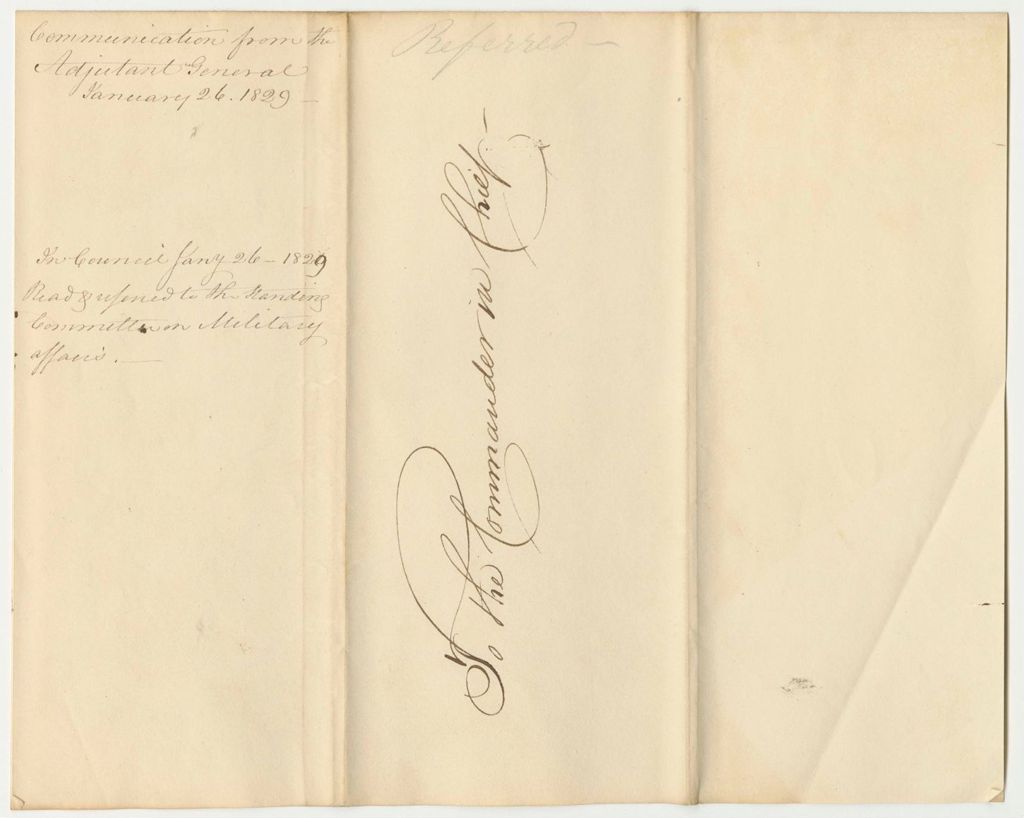 Communication from the
Adjutant General
January 26. 1829 —
In Council Jany 26 — 1829
Read & refered to the Standing
Committee on Military
affairs. —
Referred —
To the Commander in Chief —